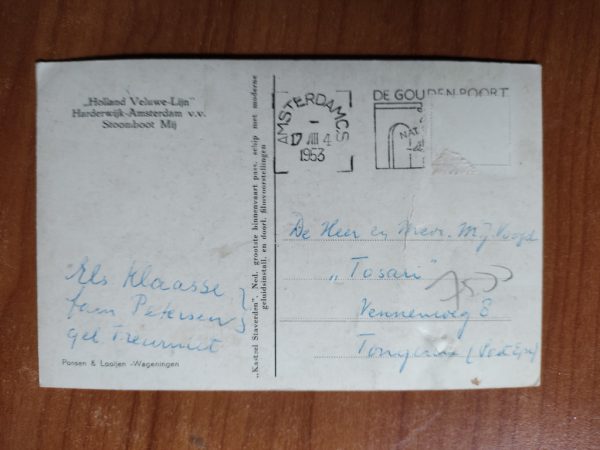 „Holland Veluwe-Lijn"
Harderwijk-Amsterdam v.v.
Stoomboot Mij
„Kasteel Staverden", Ned. grootste binnenvaart pass. schip met moderne
geluidsinstall. en doorl. filmvoorstellingen
AMSTERDAM C.S
17 VIII 4
1953
DE GOUDEN POORT
NAT
De Heer en Mevr.
„Tosari"
Vennenweg 8
Els Klaasse
fam Petersen
Ponsen & Looijen -Wageningen